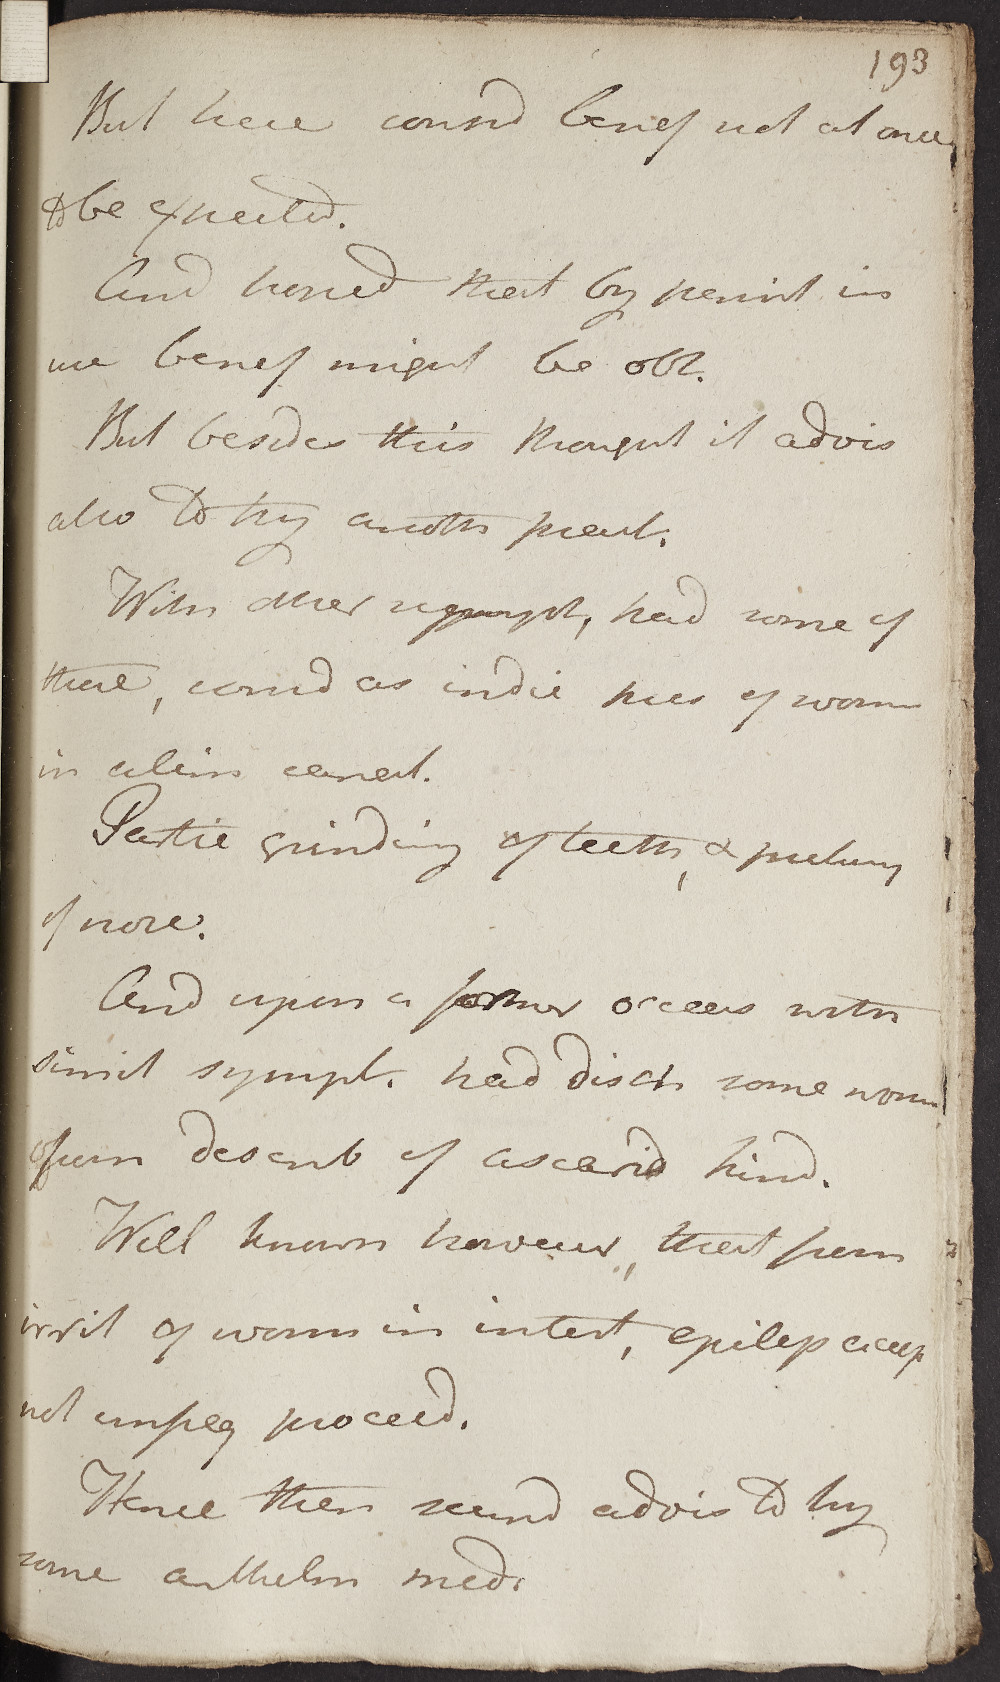 193
But here consid benef not at once
to be expected.
And hoped that by persist in
use benef might be obt.
But besides this thought it advis
also to try anoth pract.
With other sympt, had some of
these, consid as indic pres of worm
in alim canal.
Partic grinding of teeth, & picking
of nose.
And upon a former occas with
simil sympt. had disch some worm
from describ of ascarid kind.
Well known however, that from
irrit of worm in intest, epilep
not unfreq proceed.
Hence then seemd advis to try
some anthelm med.